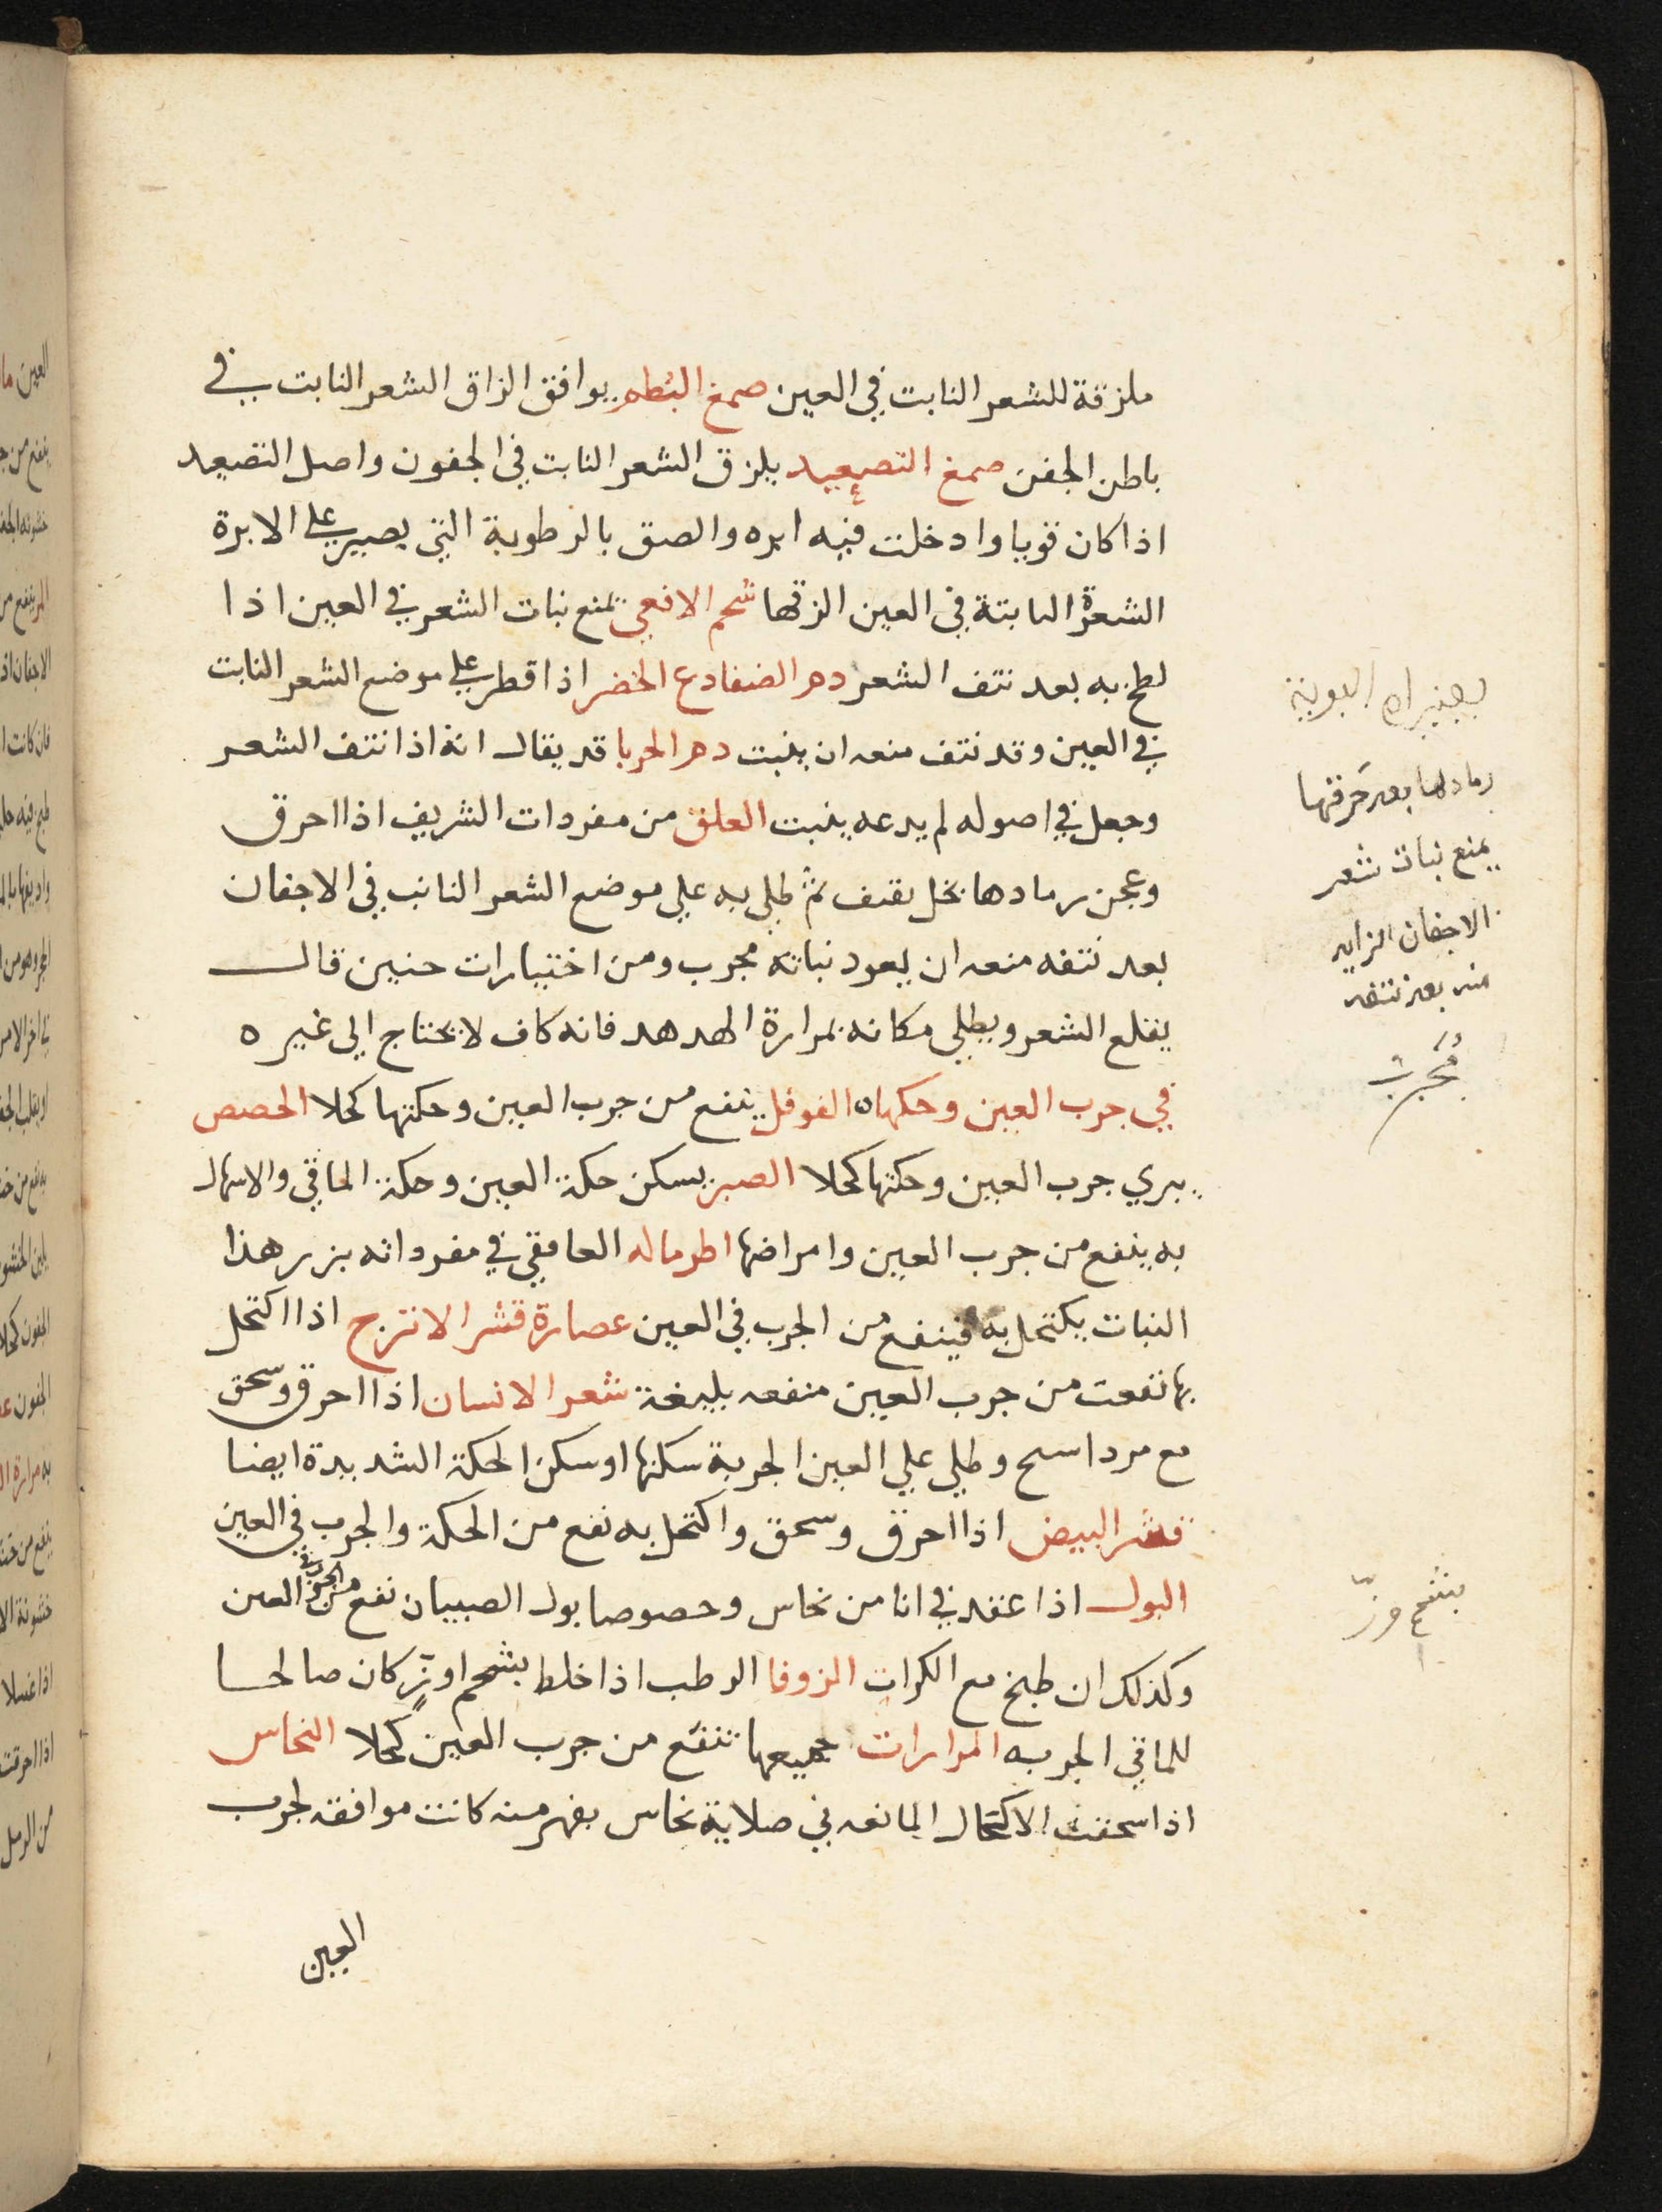 ملزقة للشعر النابت في العين صمغ البُطم يوافق الزاق الشعر النابت في
باطن الجفن صمغ التصعيد يلزق الشعر النابت في الجفون واصل التصعيد
اذا كان قويا وادخلت فيه ابره والصق بالرطوبة التي يصير علي الابرة
الشعرة النابتة في العين الزقها شحم الافعي يمنع نبات الشعر في العين اذا
لطخ به بعد نتف الشعر دم الضفادع الخضر اذا قطر علي موضع الشعر النابت
في العين وقد نتف منعه ان ينبت دم الحربا قد يقال انه اذا نتف الشعر
وجعل في اصوله لم يدعه ينبت العلق من مفردات الشريف اذا احرق
وعجن رمادها بخل ثقيف ثم طلي به علي موضع الشعر النابت في الاجفان
بعد نتفه منعه ان يعود نباته مجرب ومن اختيارات حنين قال
يقلع الشعر ويطلي مكانه بمرارة الهدهد فانه كاف لا يحتاج الي غيره
في جرب العين وحكها ه الفوفل ينفع من جرب العين وحكتها كحلا الحصص
يبري جرب العين وحكتها كحلا الصبر يسكن حكة العين وحكة الماقي والاسهال
به ينفع من جرب العين وامراضها اطرماله الغافقي في مفرداته بزر هذا
النبات يكتحل به فينفع من الجرب في العين عصارة قشر الاترج اذا اكتحل
بها نفعت من جرب العين منفعه بليغة شعر الانسان اذا احرق وسحق
مع مرداسح وطلي علي العين الجربة سكنها اوسكن الحكة الشديدة ايضا
قشر البيض اذا احرق وسحق واكتحل به نفع من الحكة والجرب في العين
البول اذا عقد في انا من نحاس وخصوصا بول الصبيان نفع من الجرب في العين
وكذلك ان طبخ مع الكراث الزوفا الرطب اذا خلط بشحم اوزّ كان صالحا
للماقي الجربه المرارات جميعها تنفع من جرب العين كحلا النحاس
اذا سحقت الاكحال المانعه في صلاية نحاس بفهر منه كانت موافقه لجرب
العين
رمادها بعد حَرقها
يمنع نبات شعر
الاجفان الزايد
منه بعد نتفه
مُجَرب
بشحم وزّ